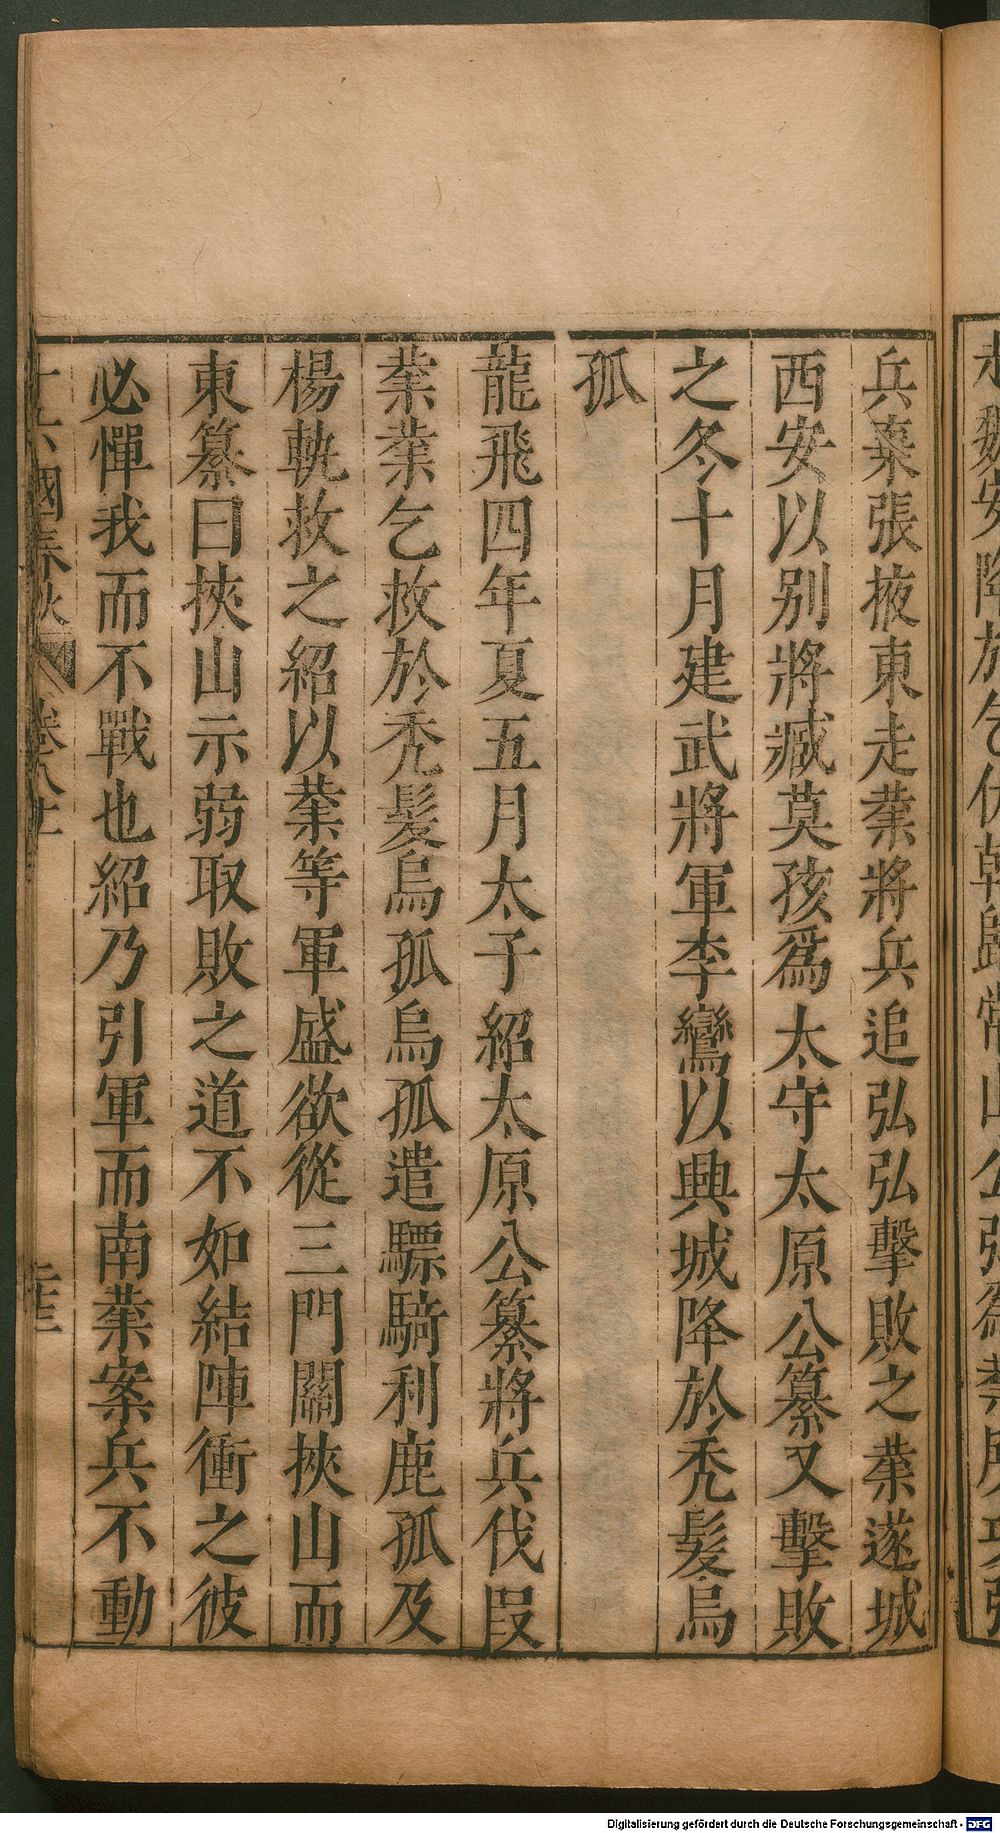 兵棄張掖東走業將兵追弘弘擊敗之業遂城
西安以别將臧莫孩爲太守太原公纂又擊敗
之冬十月建武將軍李鸞以興城降於秃髮烏
孤
龍飛四年夏五月太子紹太原公纂將兵伐段
業業乞救於秃髮烏孤烏孤遣驃騎利鹿孤及
楊軌救之紹以業等軍盛欲從三門關挾山而
東纂曰挾山示弱取敗之道不如結陣衝之彼
必憚我而不戰也紹乃引軍而南業案兵不動
十六國春秋 卷八十
Digitalisierung gefördert durch die Deutsche Forschungsgemeinschaft - DFG